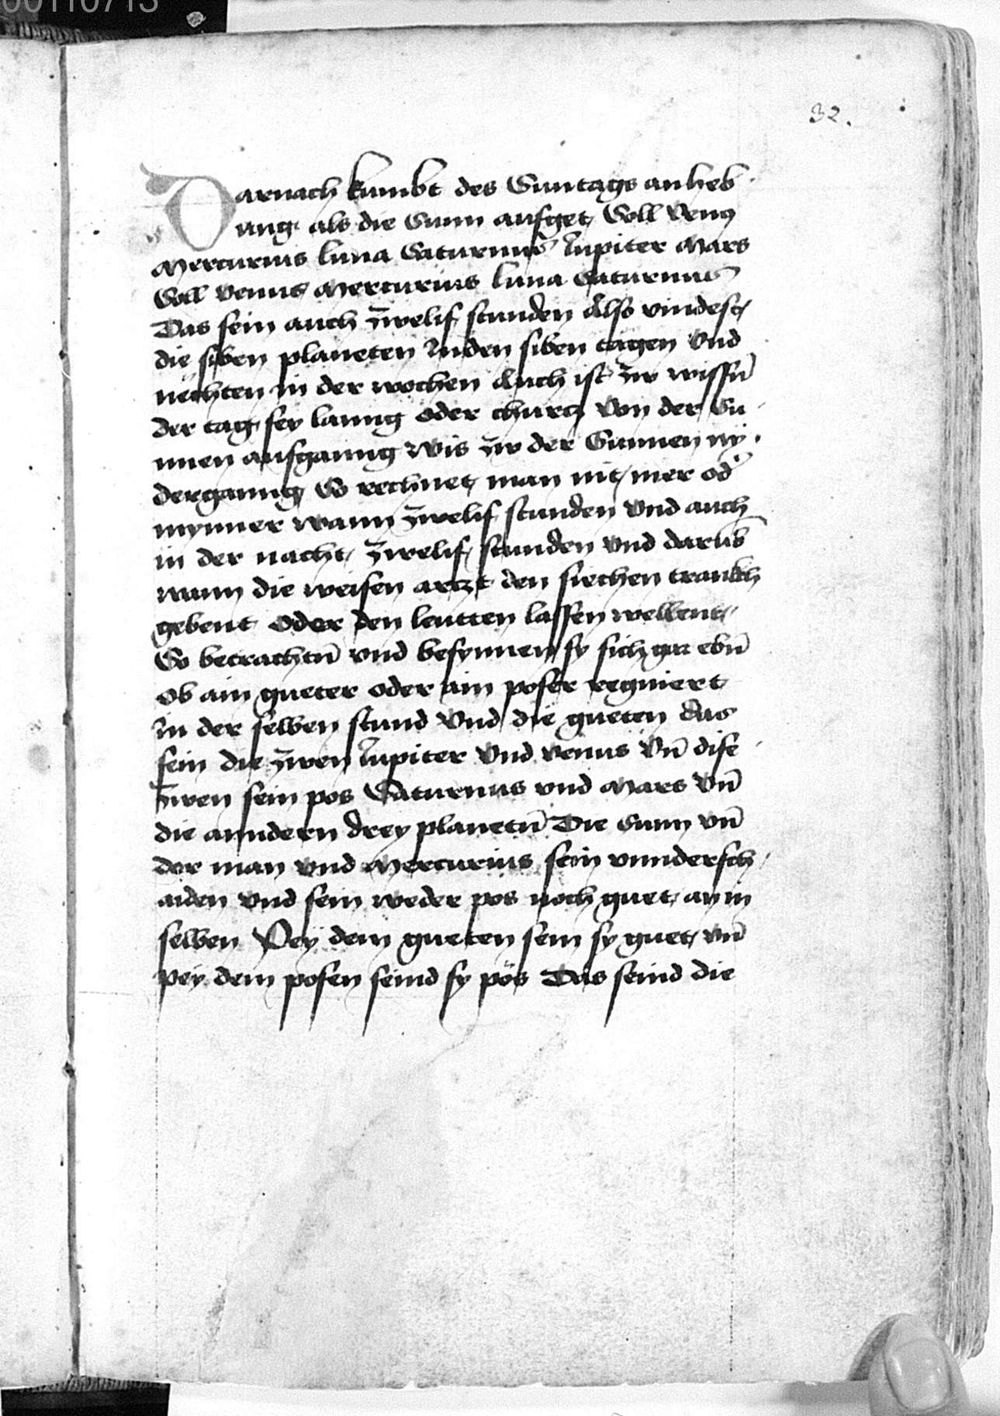 00110713
32.
Darnach kumbt des Suntags anheb
ung als die Sunn aufget Soll Venus
Mercurius luna Saturnus Iupiter Mars
Soll venus Mercurius luna Saturnus
Das sein auch zwelif stunden Also vindest
die siben planeten Inden siben tagen Vnd
nechten in der wochen Auch ist zw wissñ
der tag sey lanng oder churcz Von der Su
nnen aufganng wis zw der Sunnen ny
derganng So rechnet man nit mer od̾
mynner wann zwelif stunden Vnd auch
in der nacht zwelif stunden vnd darub̄
wann die weisen arczt den siechen trankh
gebent oder den leutten lassen wellent
So betrachtñ vnd besynnen sy sich gar ebñ
ob ain gueter oder ain poser regniert
in der selben stund Vnd die gueten das
sein die zwen Iupiter Vnd venus Vñ dise
zwen sein pos Saturnus vnd Mars Vñ
die anndern drey planetñ Die Sunn vñ
der man vnd Mercurius sein vnndersch
aiden Vnd sein weder pos noch guet an in
selben Pey dem gueten sein sy guet vñ
pey dem posen seind sy pös Das seind die